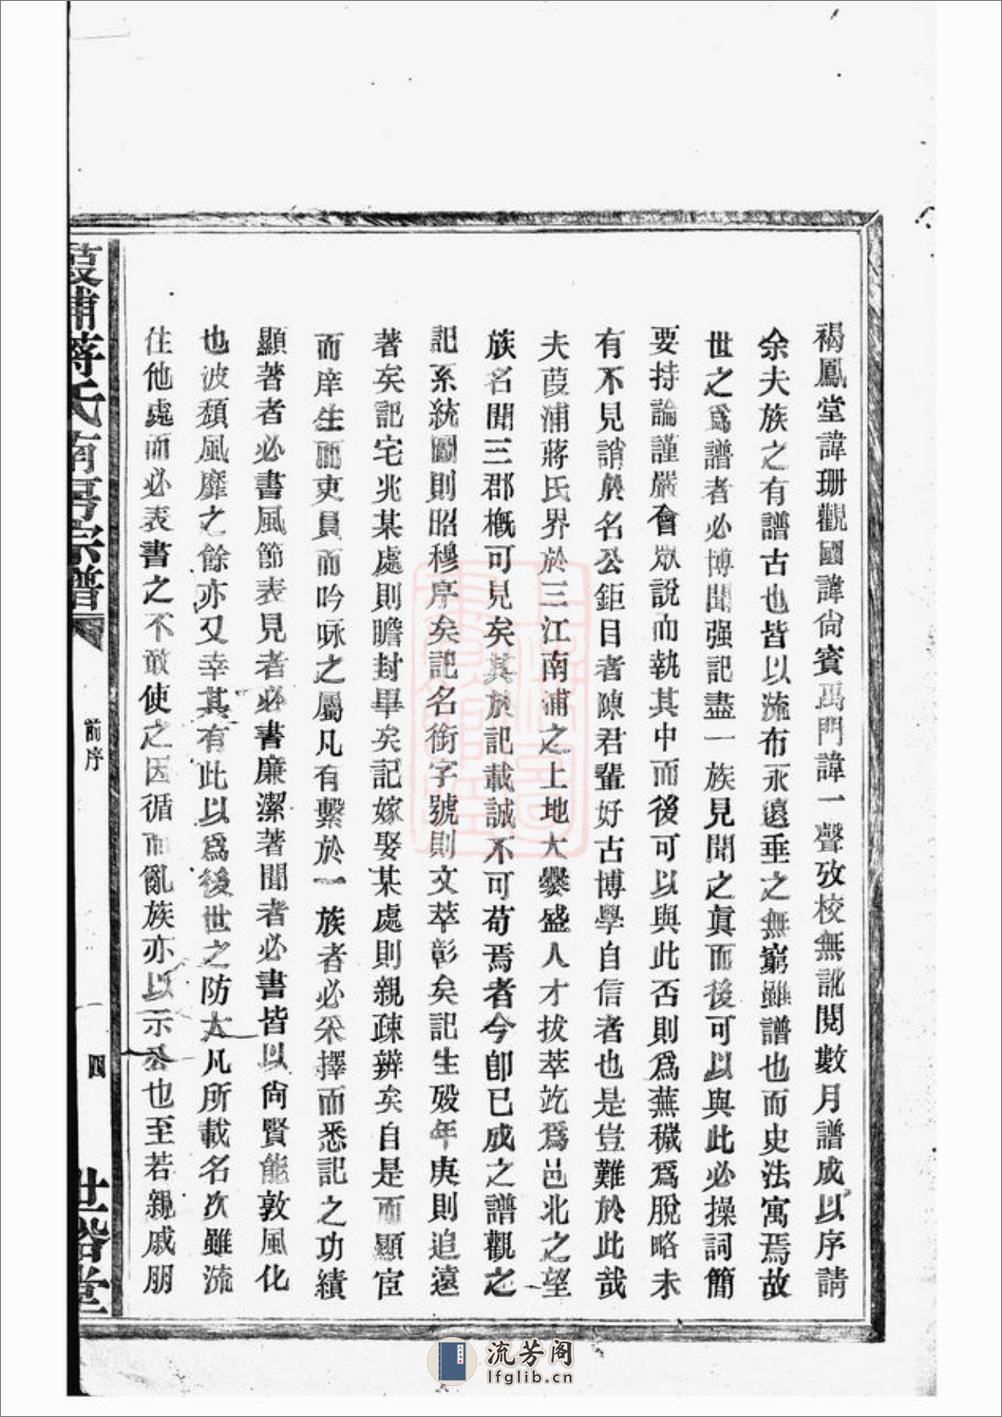 褐鳳堂諱珊觀國諱尙賓禹門諱一聲攷校無訛閱數月譜成以序請
余夫族之有譜古也皆以流布永遠垂之無窮雖譜也而史法寓焉故
世之爲譜者必博聞强記盡一族見聞之眞而後可以與此必操詞簡
要持論謹嚴會眾說而執其中而後可以與此否則爲蕪穢爲脫略未
有不見誚於名公鉅目者陳君輩好古博學自信者也是豈難於此哉
夫葭浦蔣氏界於三江南浦之上地大爨盛人才拔萃訖爲邑北之望
族名聞三郡槪可見矣其於記載誠不可苟焉者今卽已成之譜觀之
記系統圖則昭穆序矣記名銜字號則文萃彰矣記生殁年庚則追遠
著矣記宅兆某處則瞻封畢矣記嫁娶某處則親疎辨矣自是而顯宦
而庠生而吏員而吟咏之屬凡有繫於一族者必采擇而悉記之功績
顯著者必書風節表見者必書廉潔著聞者必書皆以尙賢能敦風化
也波頹風靡之餘亦又幸其有此以爲後世之防大凡所載名次雖流
住他處而必表書之不敢使之因循而亂族亦以示公也至若親戚朋
葭浦蔣氏南房宗譜
前序
四
世裕堂
流芳阁
lfglib.cn